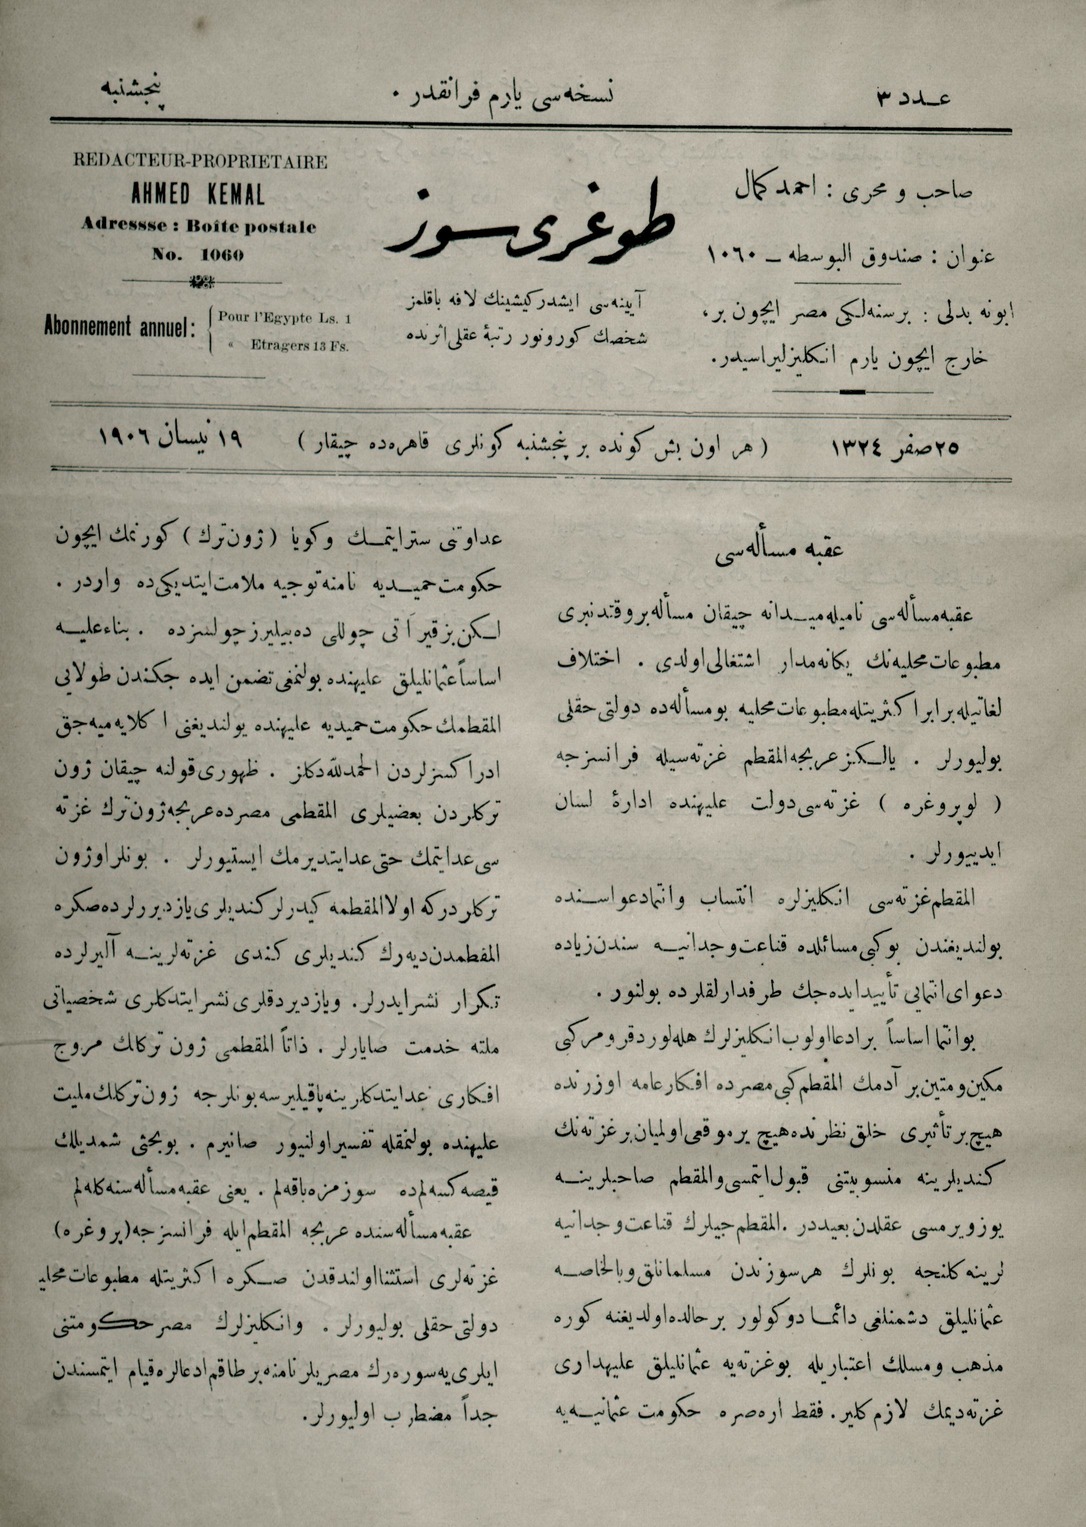 عـدد ٣
نسخه‌سی یارم فرانقدر ٠
پنجشنبه
صاحب و محرری : احمد کمال
عنوان : صندوق البوسطه ــ ١٠٦٠
ابونه بدلی : برسنه‌لکی مصر ایچون بر،
خارج ایچون یارم انکلیزلیراسیدر.
طوغری سوز
آیینه‌سی ایشدر کیشینك لافه باقلمز
شخصك کورونور رتبهٔ عقلی اثرنده
REDACTEUR-PROPRIETAIRE
AHMED KEMAL
Adressse : Boîte postale
No. 1060
Abonnement annuel:
Pour l'Egypte Ls. 1
« Etragers 13 Fs.
٢٥ صفر ١٣٢٤
( هر اون بش کونده بر پنجشنبه کونلری قاهره‌ده چیقار )
١٩ نیسان ١٩٠٦
عقبه مسأله‌سی
عقبه مسأله‌سی نامیله میـدانه چیقان مسأله بروقتدنبری
مطبوعات محلیه‌نك یکانه مدار اشتغالی اولدی . اختلاف
لغاتیله برابر اکثریتله مطبوعات محلیه بو مسأله‌ده دولتی حقلی
بولیورلر . یالـکز عربجه المقطم غزته‌سیله فرانسزجه
( لوپروغره ) غزته‌سی دولت علیهنده ادارهٔ لسان
ایدییورلر .
المقطم غزته‌سی انکلیزلره انتساب وانتما دعواسـنده
بولندیغندن بوکبی مسائلده قناعت وجدانیـه سندن زیاده
دعوای انتمایی تأیید ایده‌جك طرفدارلقلرده بولنور .
بوانتما اساساً برادعا اولوب انکلیزلرك هله لورد قرومر کبی
مکین و متین بر آدمك المقطم کبی مصرده افکار عامه اوزرنده
هیچ بر تأثیری خلق نظرنده هیچ برموقعی اولمیان برغزته‌نك
کندیلرینه منسوبیتنی قبول ایتمسی والمقطم صاحبلرینـه
یوزویرمسی عقلدن بعیددر . المقطمجیلرك قناعت وجدانیه
لرینه کلنجه بونلرك هرسوزندن مسلمانلق وبالخاصـه
عثمانلیلق دشمنلغی دائمـا دوکولور برحالده اولدیغنه کوره
مذهب ومسلك اعتباریله بوغزته‌یه عثمانلیلق علیهداری
غزته دیمك لازم کلیر. فقط اره‌صره حکومت عثمانیـه‌یه
عداوتنی سترایتمـك وکویا ( ژون ترك ) کورنمك ایچون
حکومت حمیـدیه نامنه توجیه ملامت ایتدیکی‌ده واردر .
لـکن بزقیرآتی چوللی ده بیلیرز چولسزده . بناءعلیـه
اساساً عثمانلیلق علیهنده بولنمغی تضمن ایده جکندن طولایی
المقطمك حکومت حمیدیه علیهنده بولندیغنی اکلایه‌میه‌جق
ادراکسزلردن الحمدلله دکلز . ظهوری قولنه چیقان ژون
ترکلردن بعضیلری المقطمی مصرده عربجه ژون ترك غزته
سی عدایتمك حتی عدایتدیرمك ایستیورلر . بونلر اوژون
ترکلردرکه اولا المقطمه کیدرلر کندیلری یازدیررلر ده صکره
المقطمدن دیه‌رك کندیلری کندی غزته‌لرینـه آلیرلرده
تکرار نشرایدرلر. ویازدیردقلری نشرایتدکلری شخصیاتی
ملته خدمت صایارلر . ذاتاً المقطمی ژون ترکلك مروج
افکاری عدایتدکلرینه باقیلیرسه بونلرجه ژون ترکلك ملیت
علیهنده بولنمقله تفسیراولنیور صانیرم . بوبحثی شمدیلك
قیصه کسه‌لم‌ده سوزمزه باقه‌لم . یعنی عقبه مسأله‌سنه کله‌لم
عقبه مسأله‌سنده عربجه المقطم ایله فرانسزجه (پروغره)
غزته‌لری استثنا اولندقدن صـکره اکثریتله مطبوعات محلیه
دولتی حقلی بولیورلر . وانکلیزلرك مصر حکومتنی
ایلری‌یه سوره‌رك مصریلر نامنه برطاقم ادعالره قیام ایتمسندن
جداً مضطرب اولیورلر.